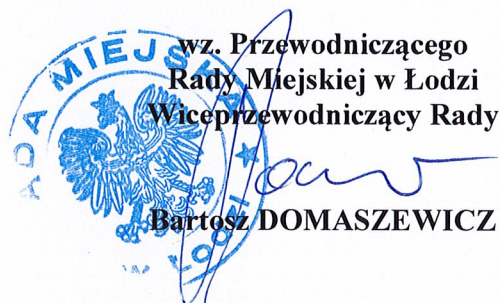 wz. Przewodniczącego
Rady Miejskiej w Łodzi
Wiceprzewodniczący Rady
Bartosz DOMASZEWICZ
RADA MIEJSKA
ŁODZI